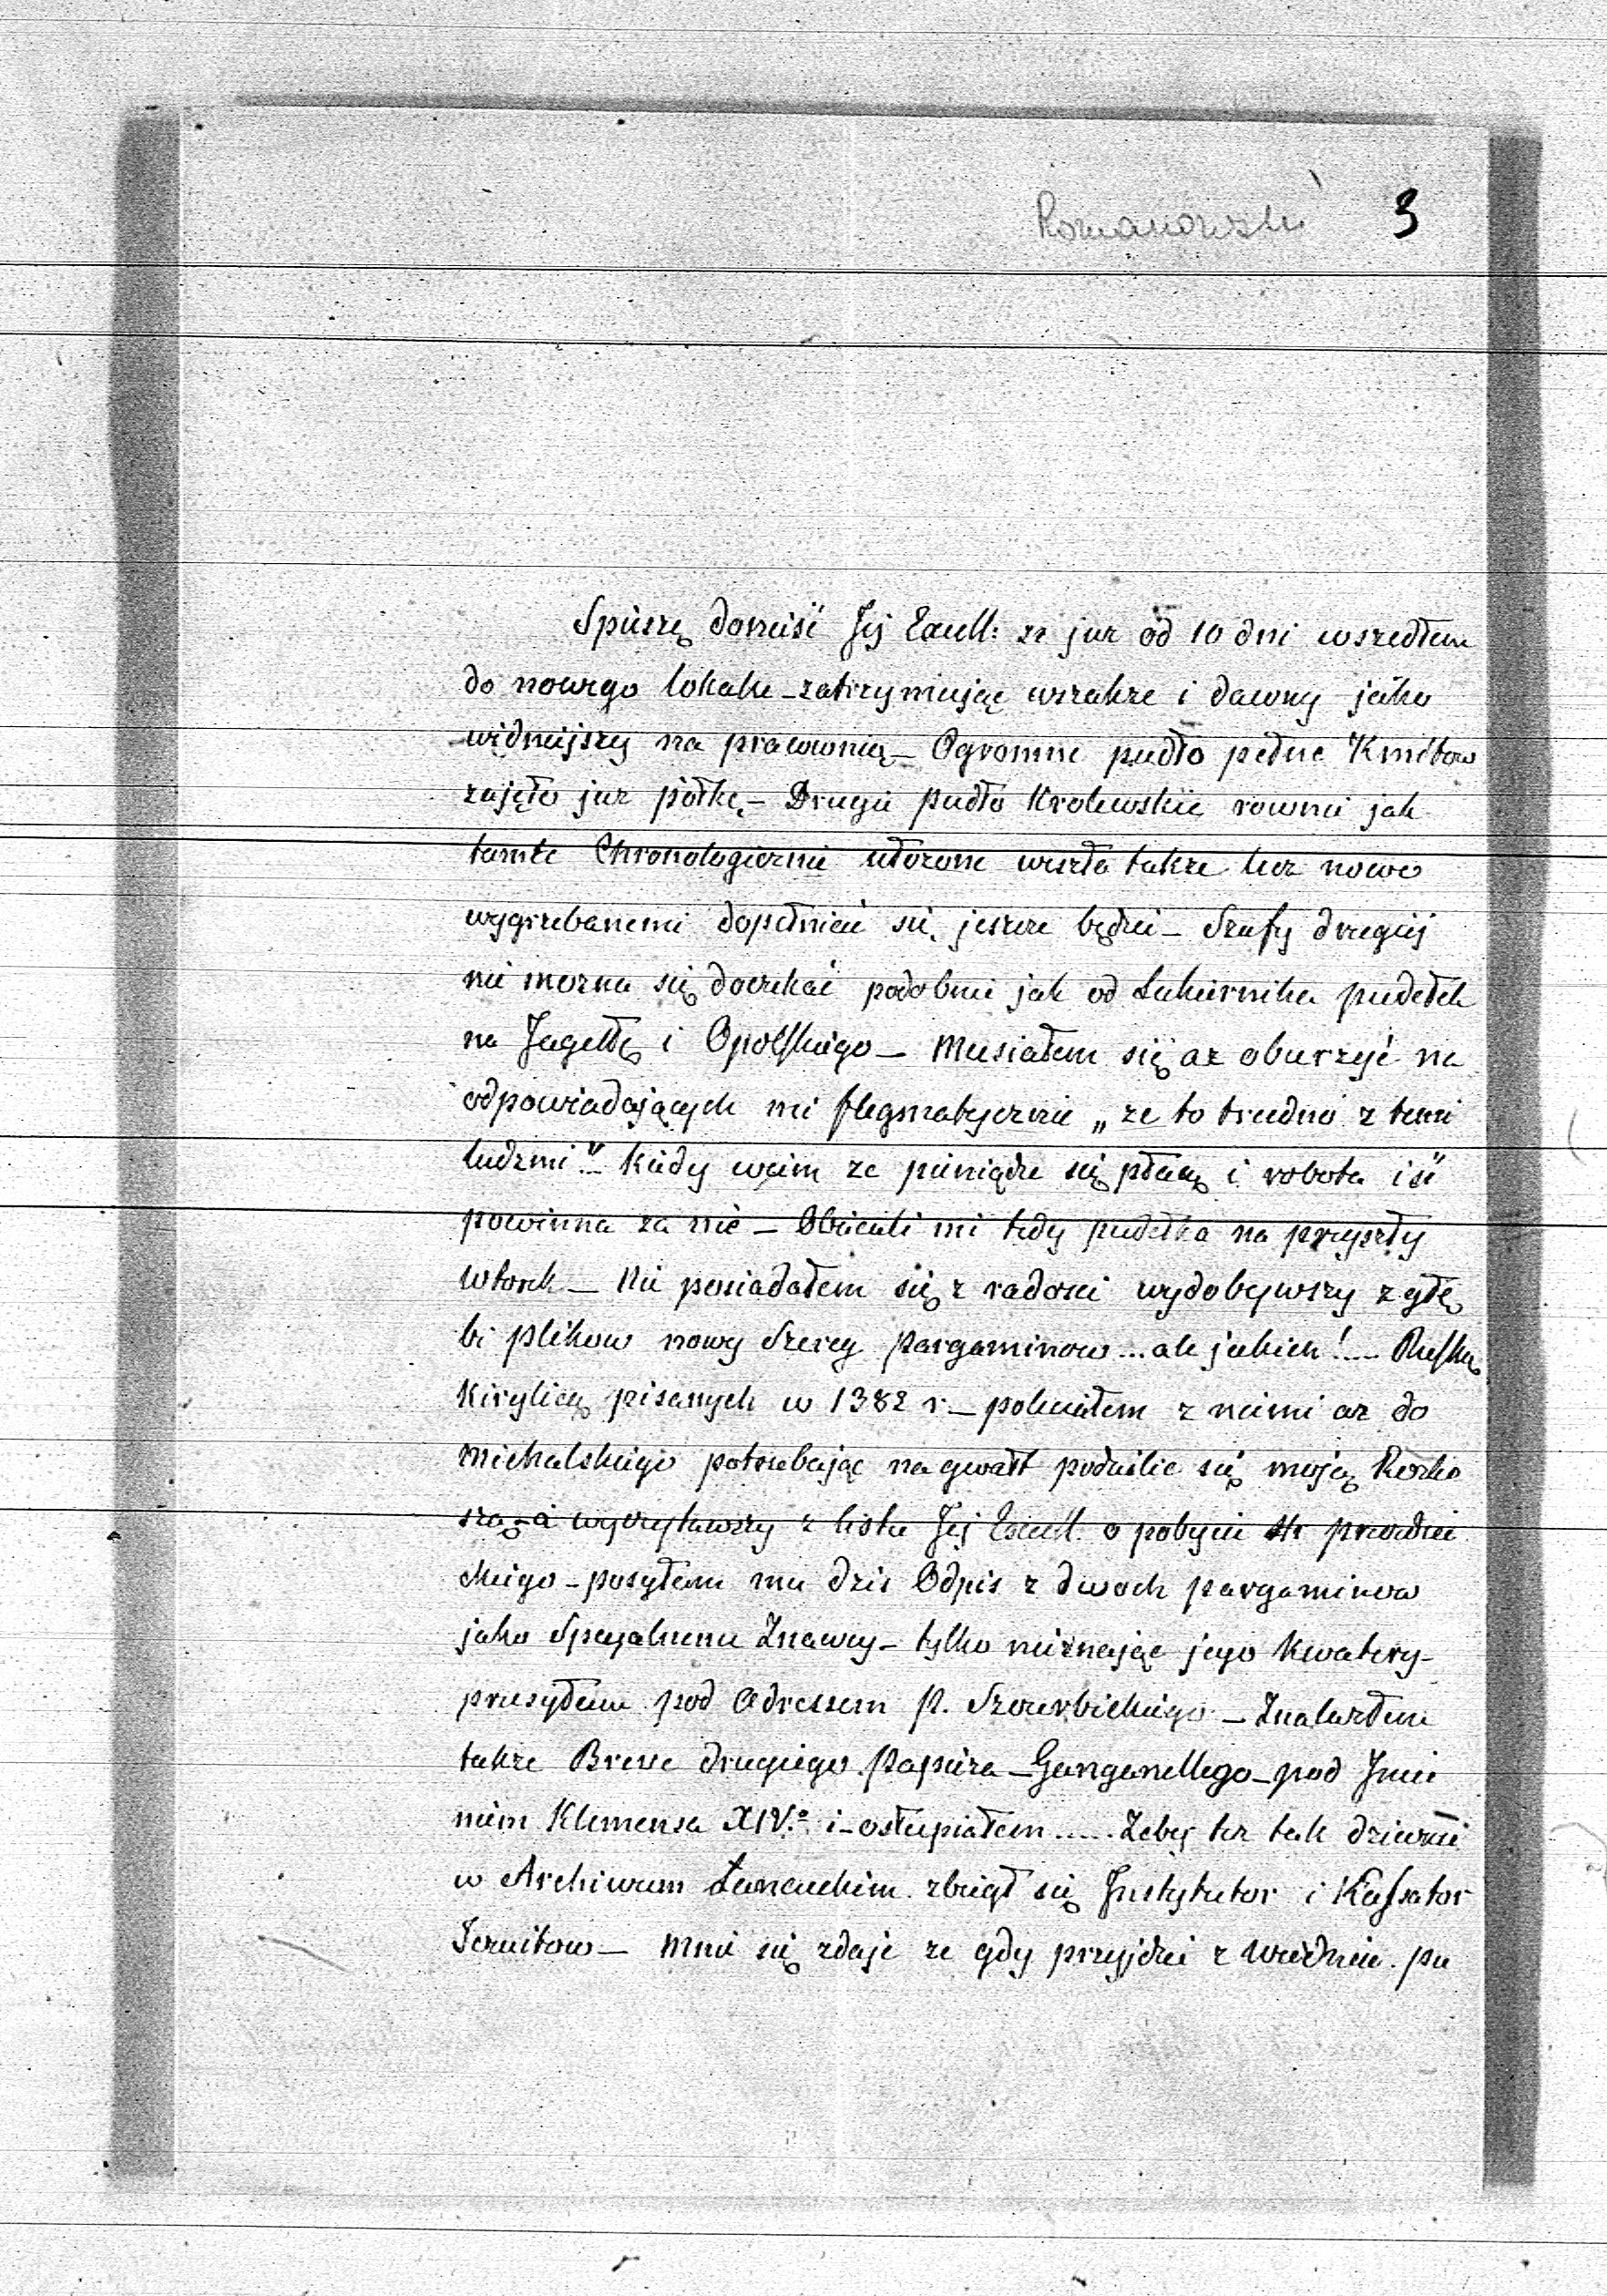 Romanowski 3
Spieszę donieść Jej Excell: ze juz od 10 dni wszedłem
do nowego lokalu – zatrzymując wszakze i dawny jako
widniejszy na pracownią – Ogromne pudło pełne Kmitow
zajęło juz półkę – Drugie pudło Krolewskie rownie jak
tamte Chronologicznie ułozone weszło takze lecz nowo
wygrzebanemi dopełnieć się jeszcze będzie – Szafy drugiej
nie mozna się doczekać podobnie jak od Lakiernika pudełek
na Jagełłę i Opolskiego – Musiałem się az oburzyć na
odpowiadających mi flegmatycznie „ze to trudno z temi
ludzmi" – Kiedy wiem ze pieniądze się płacą i robota iść
powinna za nie – Obiecali mi tedy pudełka na przyszły
Wtorek – Nie posiadałem się z radosci wydobywszy z głę
bi plikow nowy Szereg Pargaminow ... ale jakich! .... Ruską
Kirylicą pisanych w 1382 r. – poleciałem z niemi az do
Michalskiego potrzebając na gwałt podzielic się moją Rozko
szą – a wyczytawszy z listu Jej Excell. o pobycie Hr prawdzi
ckiego – posyłam mu dzis Odpis z dwoch pargaminow
jako Specyalnemu Znawcy – tylko nieznając jego Kwatery –
przesyłam pod Adressem P. Szczerbickiego – Znalazłem
takze Breve drugiego Papieza – Ganganellego – pod Jmie
niem Klemensa XIV.º i – osłupiałem ..... Zeby tez tak dziwnie
w Archiwum Łancuckim zbiegł się Jnstytutor i Kassator
Jezuitow – Mnie się zdaje ze gdy przyjdzie z Wiednia pu